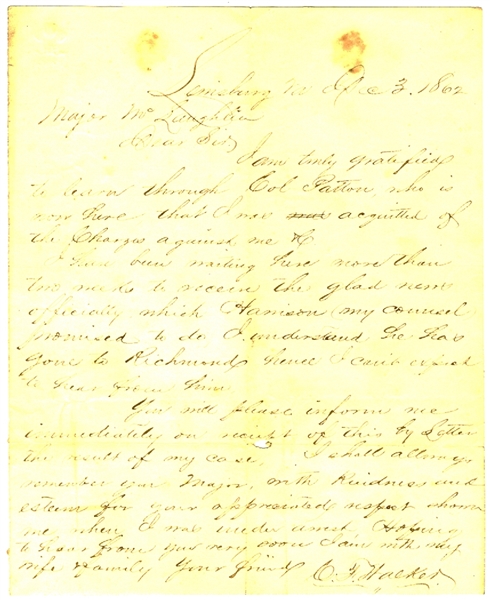 Lewisburg Va Dec 3. 1862
Major McLaughlin
Dear Sir
I am truly gratified
to learn through Col Patton, who is
now here, that I was acquitted of
the Charges against me &c
I have been waiting here more than
two weeks to receive the glad news
officially which Harrison (my counsel)
promised to do I understand he has
gone to Richmond hence I can't expect
to hear from him
You will please inform me
immediately on receipt of this by Letter
the result of my case, I shall always
remember you Major, with Kindness and
esteem for your appreciated respect shown
me when I was under arrest, Hoping
to hear from you very soon I am with my
wife & family Your friend C. F. Walker